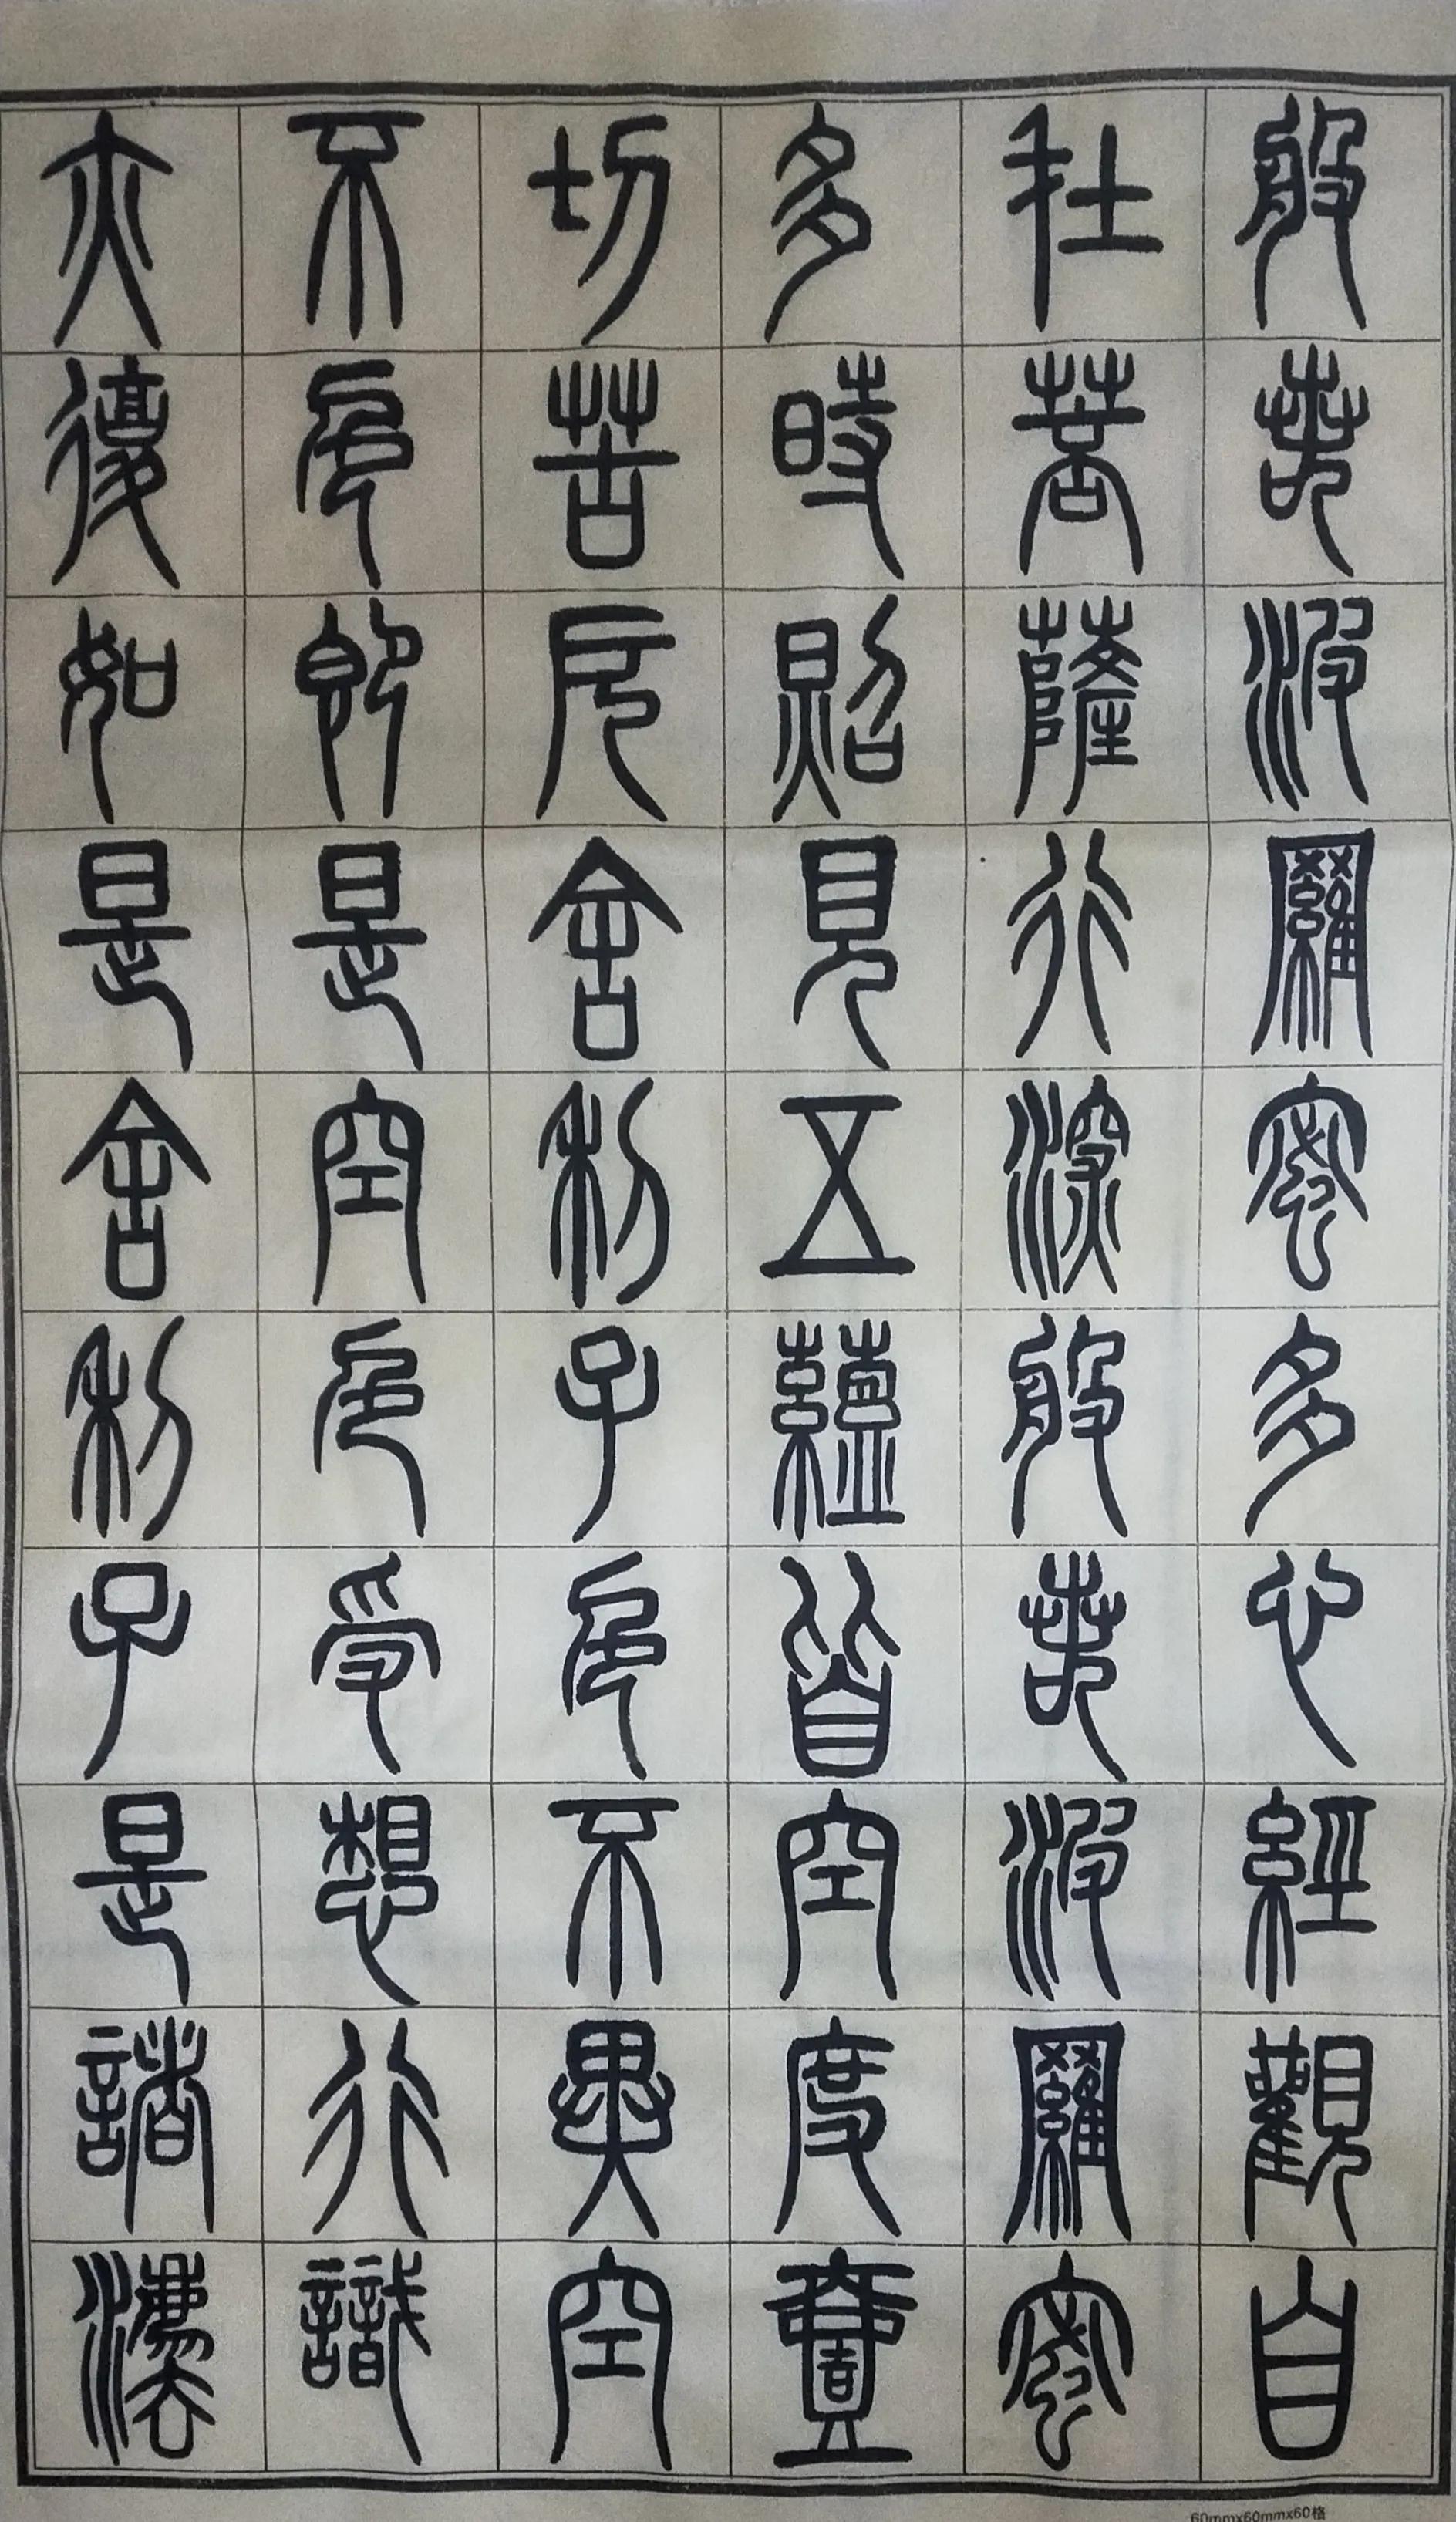 般若波羅蜜多心經觀自
在菩薩行深般若波羅蜜
多時照見五蘊皆空度壹
切苦厄舍利子色不異空
不色即是空色受想行識
亦復如是舍利子是諸法
60mmx60mmx60格